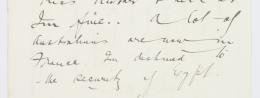 I'm fine.. A lot of
Australians are now in
France. I'm destined to
the security of Egypt.